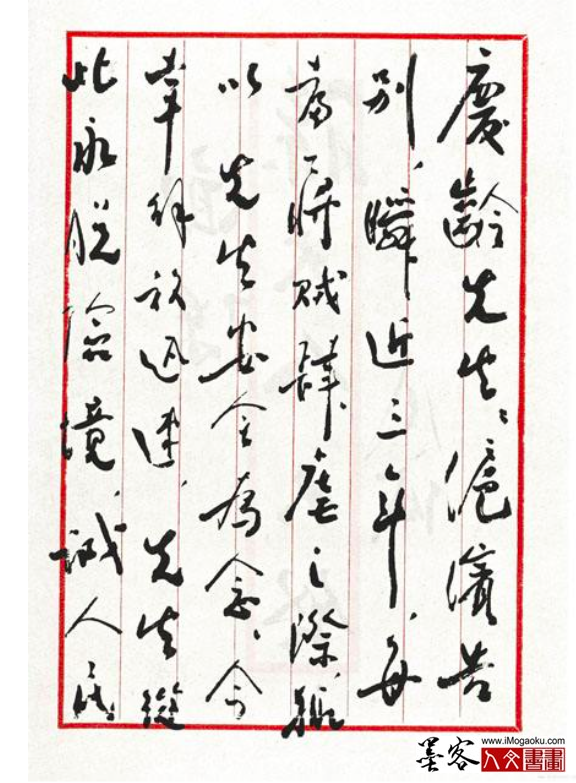 慶齡先生：滬濱告
别，瞬近三年，每
當蔣賊肆虐之際，輒
以先生安全為念。今
幸解放迅速，先生從
此永脱險境，誠人民
墨客 www.iMogaoku.com
人文書畫